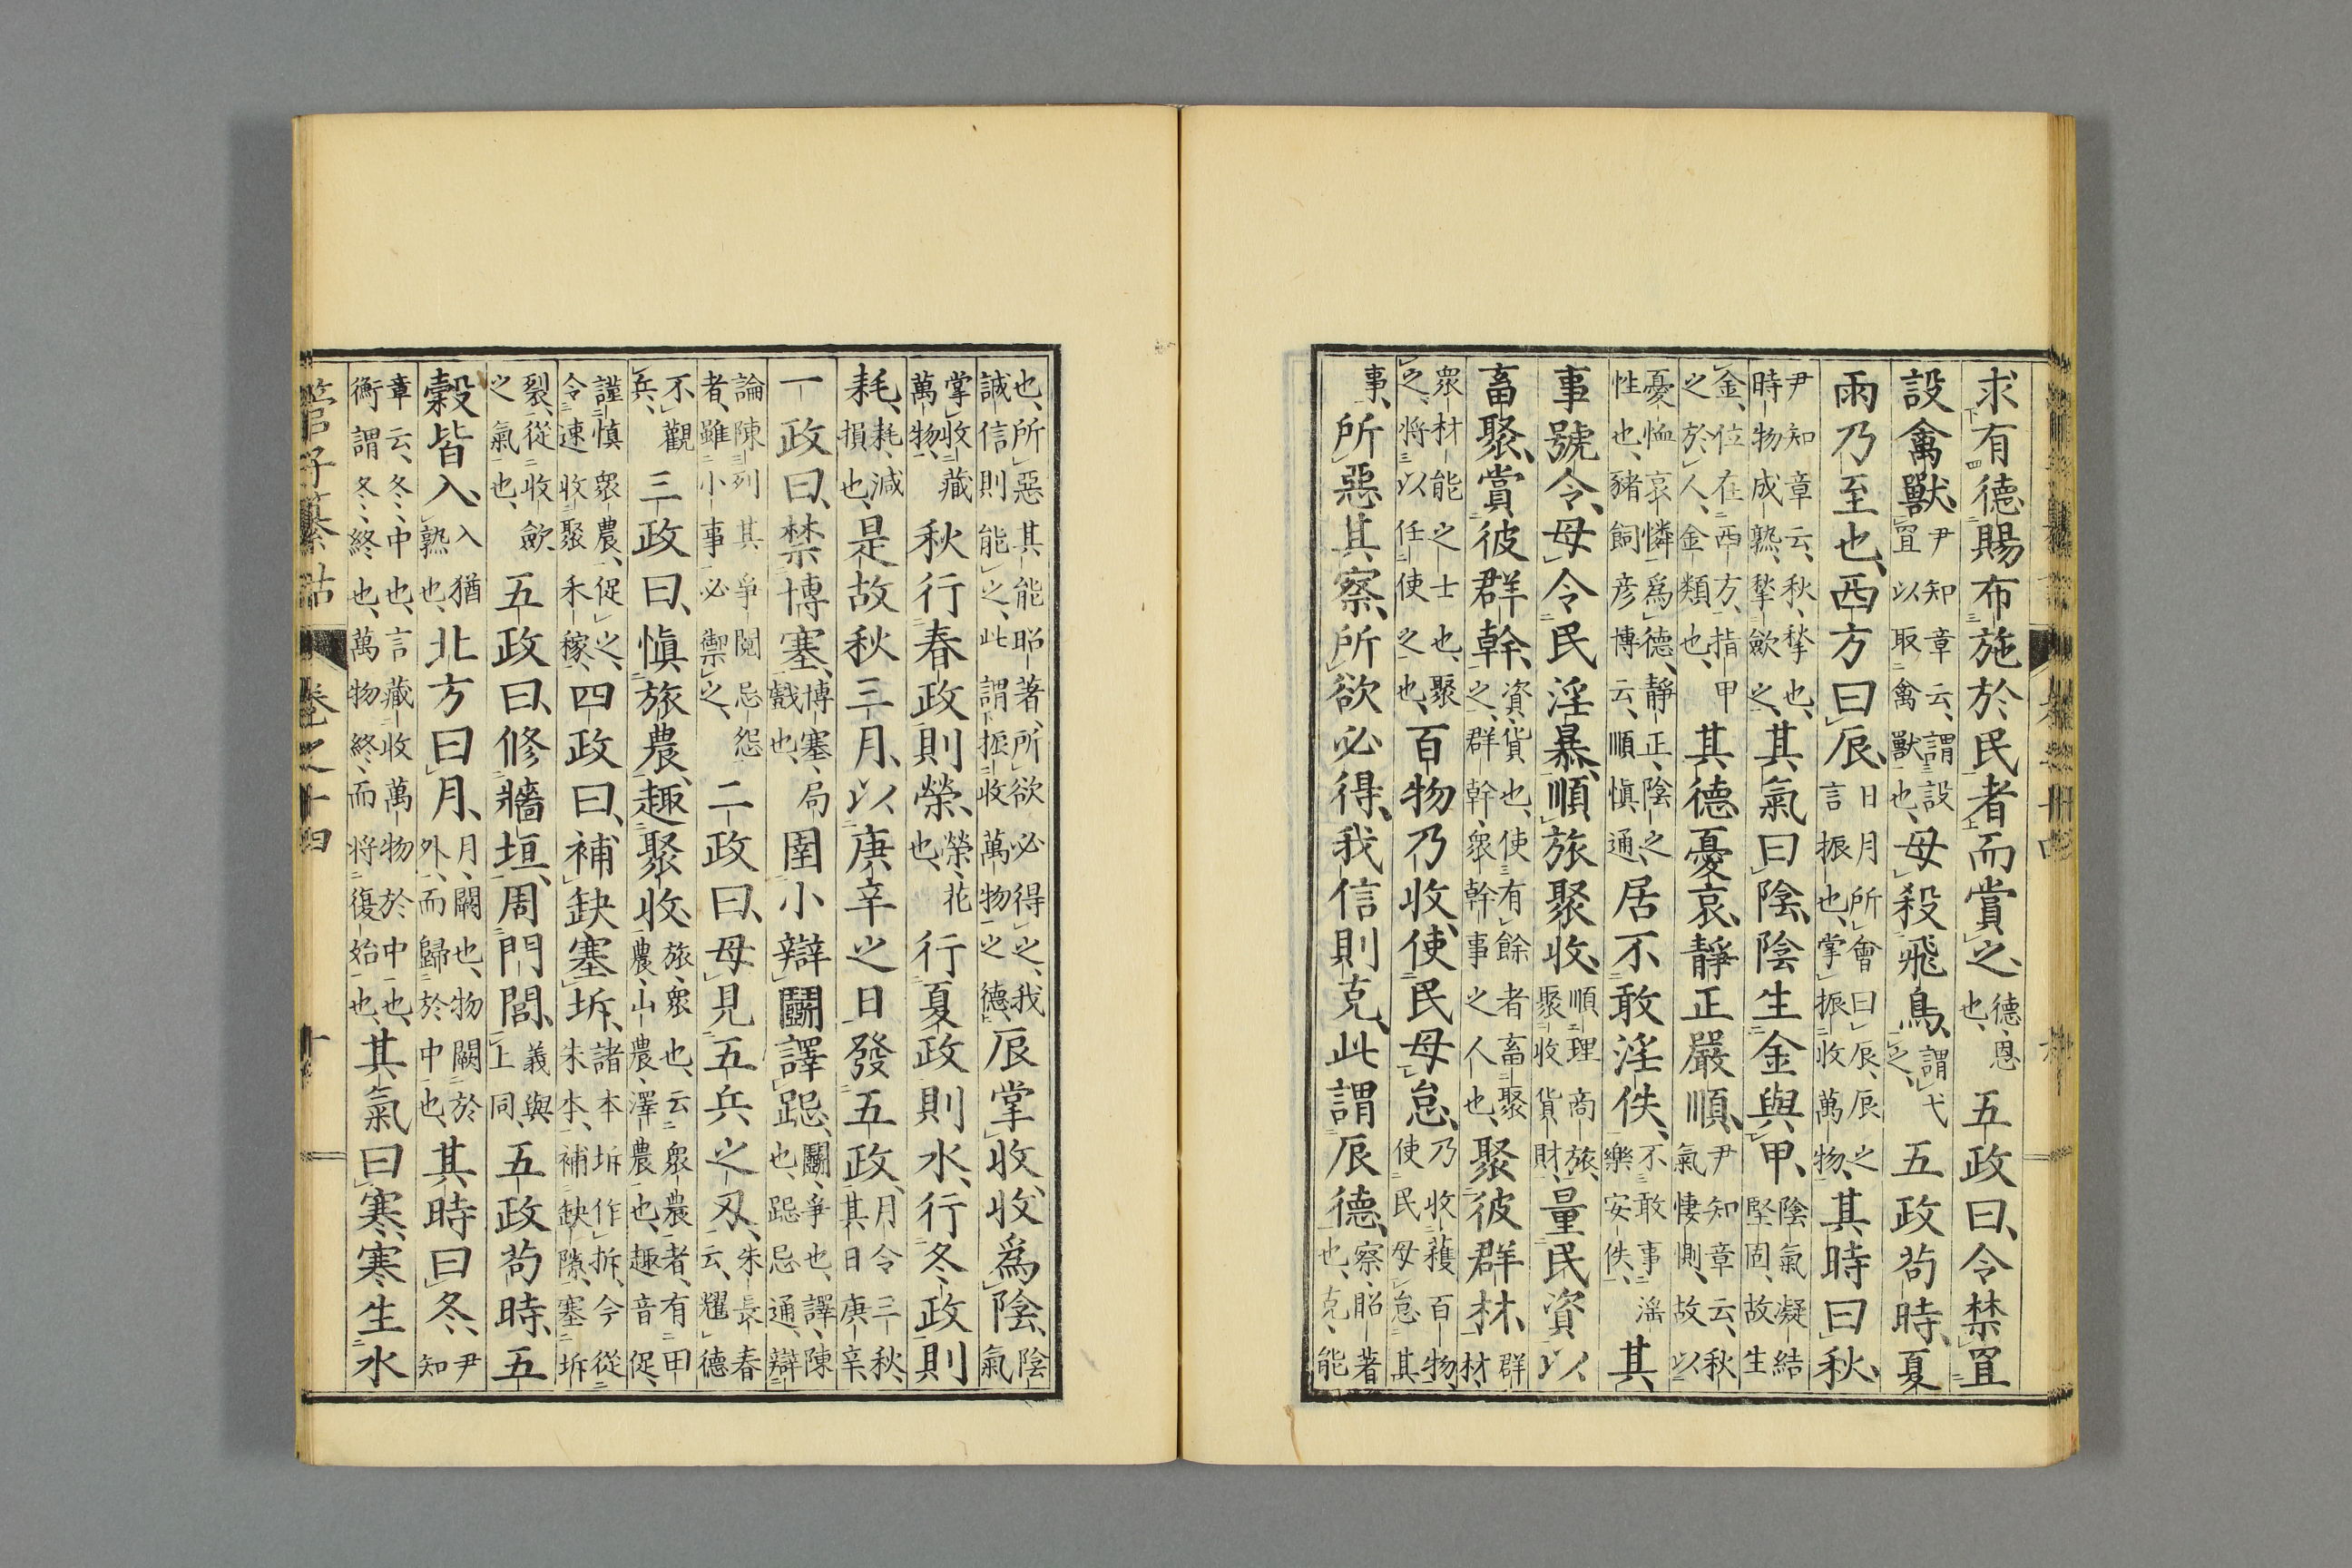 求有德賜布施於民者而賞之、德恩也、五政曰、令禁罝
設禽獸、尹知章云、謂設罝以取禽獸也、毋殺飛鳥、謂弋之、五政茍時、夏
雨乃至也、西方曰辰、日月所會曰辰、辰之言振也、掌振收萬物、其時曰秋、
尹知章云、秋揫也、時物成熟、揫斂之、其氣曰陰、陰生金與甲、陰氣凝結堅固、故生
金、位在西方、指甲之於人、金類也、其德憂哀、靜正嚴順、尹知章云、秋氣悽惻、故以
憂恤哀憐爲德、靜正、陰之性也、豬飼彥博云、順愼通、居不敢淫佚、不敢事滛樂安佚、其
事號令、毋令民淫暴、順旅聚收、順理商旅、聚收貨財、量民資以
畜聚、賞彼群幹、資、貨也、使有餘者畜聚之、群幹、衆幹事之人也、聚彼群材、群材、
衆材能之士也、聚之、將以任使之也、百物乃收、使民毋怠、乃收穫百物、使民毋怠其
事、所惡其察、所欲必得、我信則克、此謂辰德、察、昭著也、克、能
也、所惡其能昭著、所欲必得之、我誠信則能之、此謂振收萬物之德、辰掌收、收爲陰、陰氣
掌收藏萬物、秋行春政則榮、榮、花也、行夏政則水、行冬政則
耗、耗、減損也、是故秋三月、以庚辛之日發五政、月令三秋、其日庚辛、
一政曰、禁博塞、博塞、局戲也、圉小辯、鬭譯跽、鬭、爭也、譯、陳也、跽忌通、辯
論陳列其爭鬩忌怨者、雖小事必禦之、二政曰、毋見五兵之刃、朱長春云、耀德
不觀兵、三政曰、愼旅農、趣聚收、旅、衆也、云衆農者、有田農、山農、澤農也、趣音促、
謹愼衆農、促之、令速收聚禾稼、四政曰、補缺塞坼、諸本坼作拆、今從朱本、補缺隙、塞坼
裂、從收斂之氣也、五政曰、修牆垣、周門閭、義與上同、五政茍時、五
穀皆入、入猶熟也、北方曰月、月、闕也、物闕於外、而歸於中也、其時曰冬、尹知
章云、冬、中也、言藏收萬物於中也、衡謂冬、終也、萬物終、而將復始也、其氣曰寒、寒生水
管子纂詁 卷之十四 十